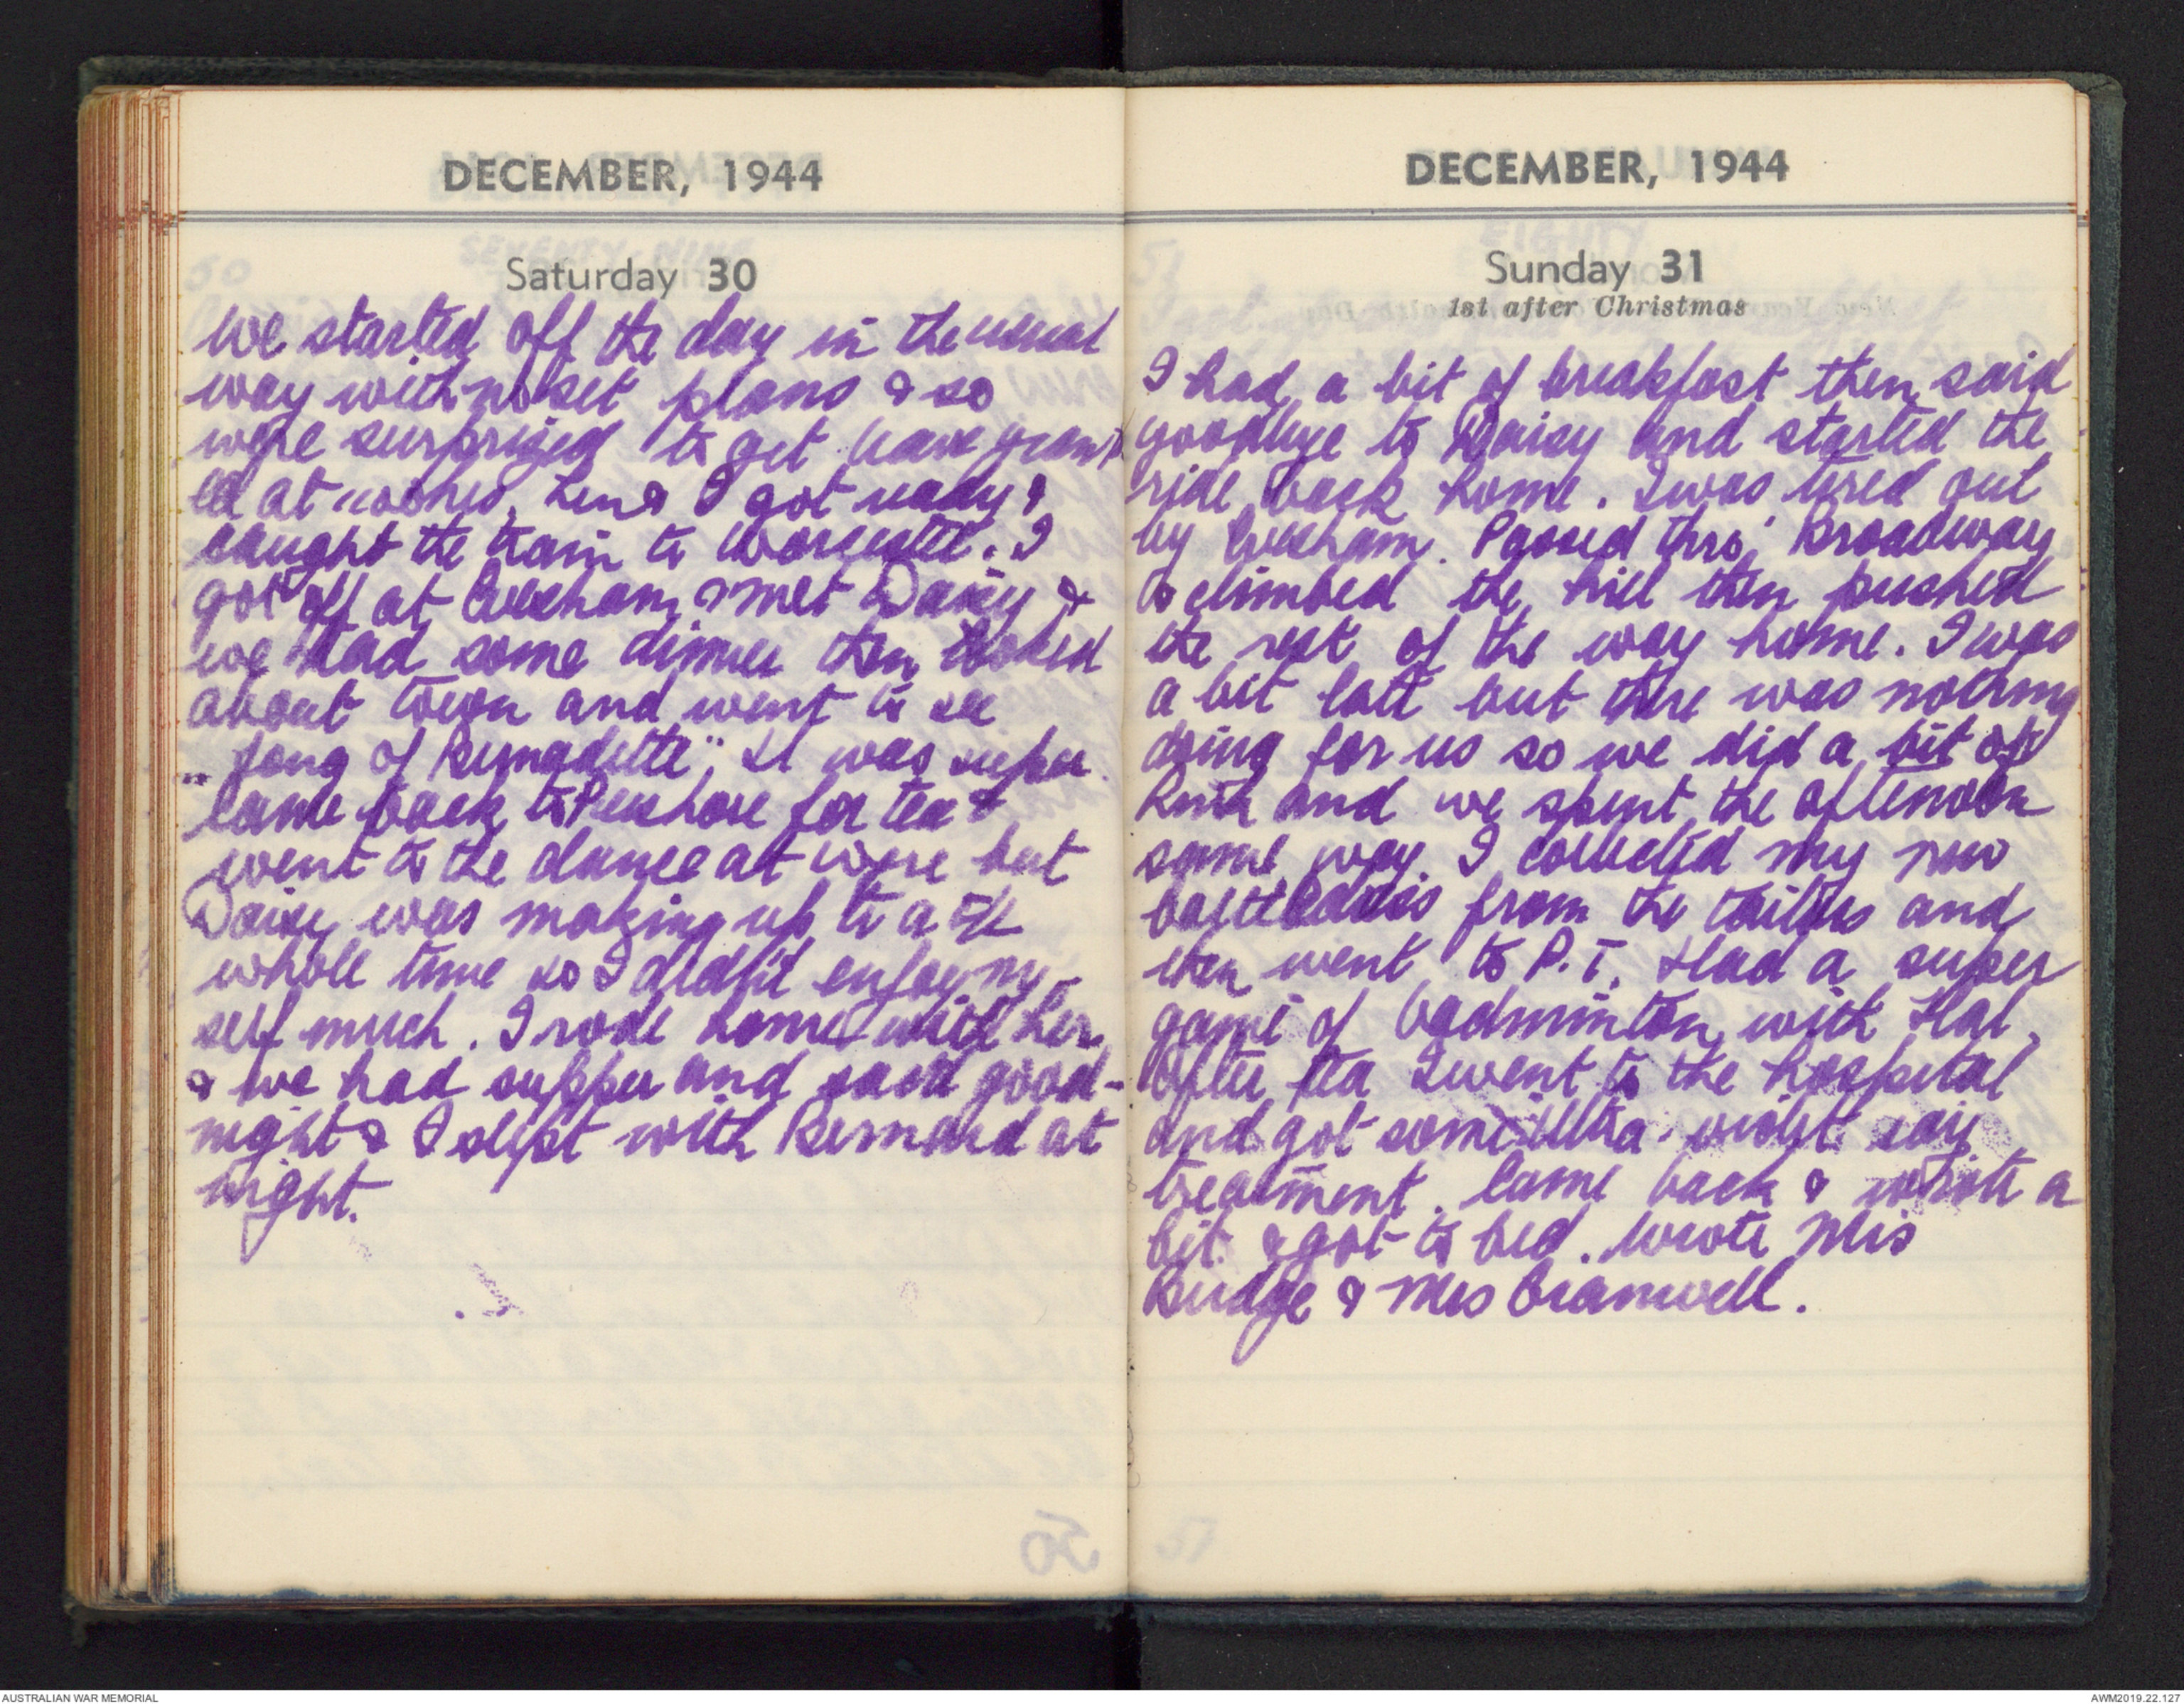 DECEMBER, 1944
Saturday 30
We started off the day in the usual
way with no set plans & so
were surprized to get leave grant
ed at Len & I got ready &
caught the train to Worcester. I
got off at Evesham & met Daisy &
we had some dinner then looked
about town and went to see
"Song of Bernadette". It was super.
Came back to Pershore for tea &
went to the dance at Wyre but
Daisy was making up to a
whole time so I didn't enjoy my-
self much. I rode home with her
& we had supper and said good-
night & I slept with Bernard at
night.
DECEMBER, 1944
Sunday 31
1st after Christmas
I had a bit of breakfast then said
goodbye to Daisy and started the
ride back home. I was tired out
by Evesham. Passed thro' Broadway
& climbed the hill then pushed
the rest of the way home. I was
a bit late but there was nothing
doing for us so we did a bit of
and we spent the afternoon
same way. I collected my new
battledress from the tailors and
then went to P.T. Had a super
game of badminton with Hal.
After tea I went to the hospital
and got some Ultra-violet ray
treatment. Came back & wrote a
bit & got to bed. Wrote Mrs
Budge & Mrs Bramwell.
50
51
AUSTRALIAN WAR MEMORIAL
AWM2019.22.127